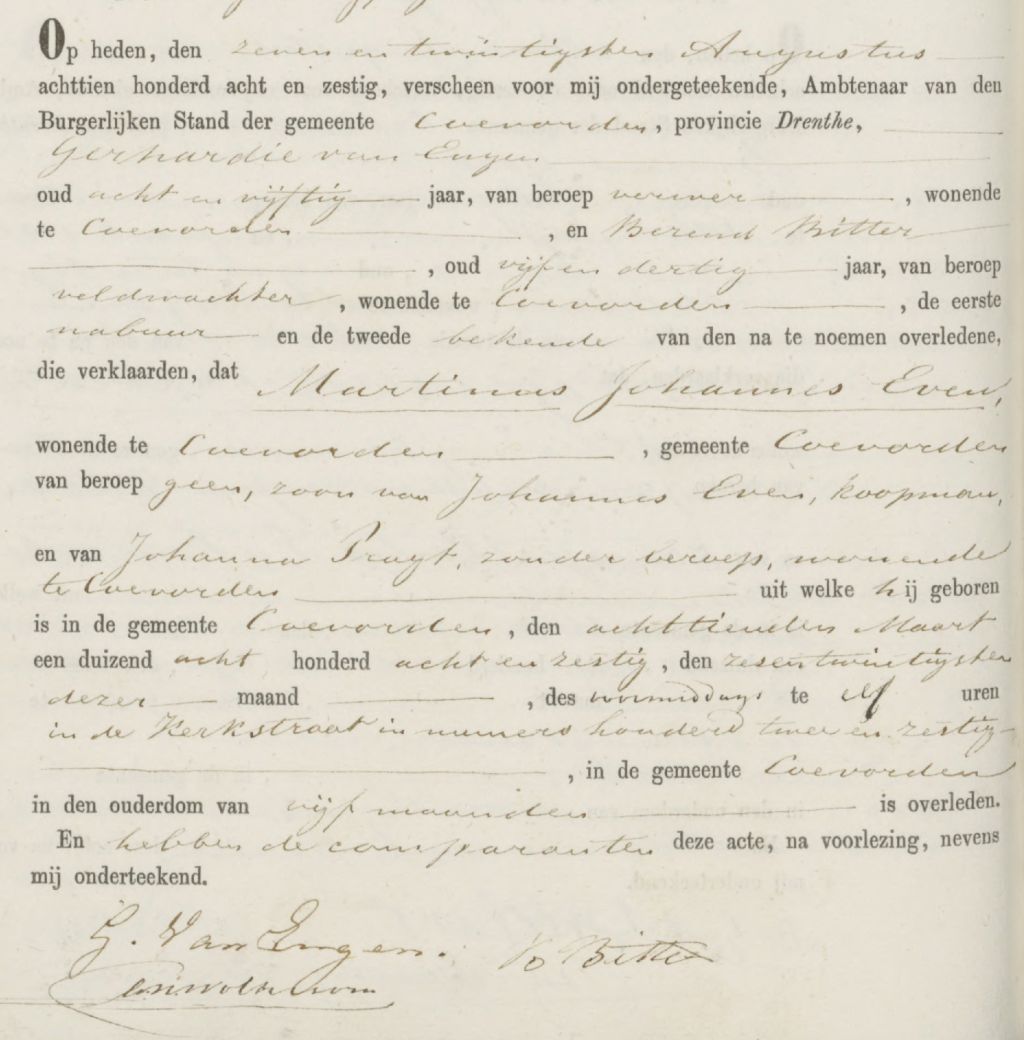 Op heden, den zeven en twintigsten Augustus
achttien honderd acht en zestig, verscheen voor mij ondergeteekende, Ambtenaar van den
Burgerlijken Stand der gemeente Coevorden, provincie Drenthe,
Gerhardie van Engen
oud acht en vijftig jaar, van beroep verwer, wonende
te Coevorden, en Berend Bitter
, oud vijf en dertig jaar, van beroep
veldwachter, wonende te Coevorden, de eerste
nabuur en de tweede bekende van den na te noemen overledene,
die verklaarden, dat Martinus Johannes Even,
wonende te Coevorden, gemeente Coevorden
van beroep geen, zoon van Johannes Even, koopman,
en van Johanna Pruyt, zonder beroep, wonende
te Coevorden uit welke hij geboren
is in de gemeente Coevorden, den achttienden Maart
een duizend acht honderd acht en zestig, den zesentwintigsten
dezer maand, des voormiddags te elf uren
in de Kerkstraat in numero honderd twee en zestig
, in de gemeente Coevorden
in den ouderdom van vijf maanden is overleden.
En hebben de comparanten deze acte, na voorlezing, nevens
mij onderteekend.
G. Van Engen. B Bitter